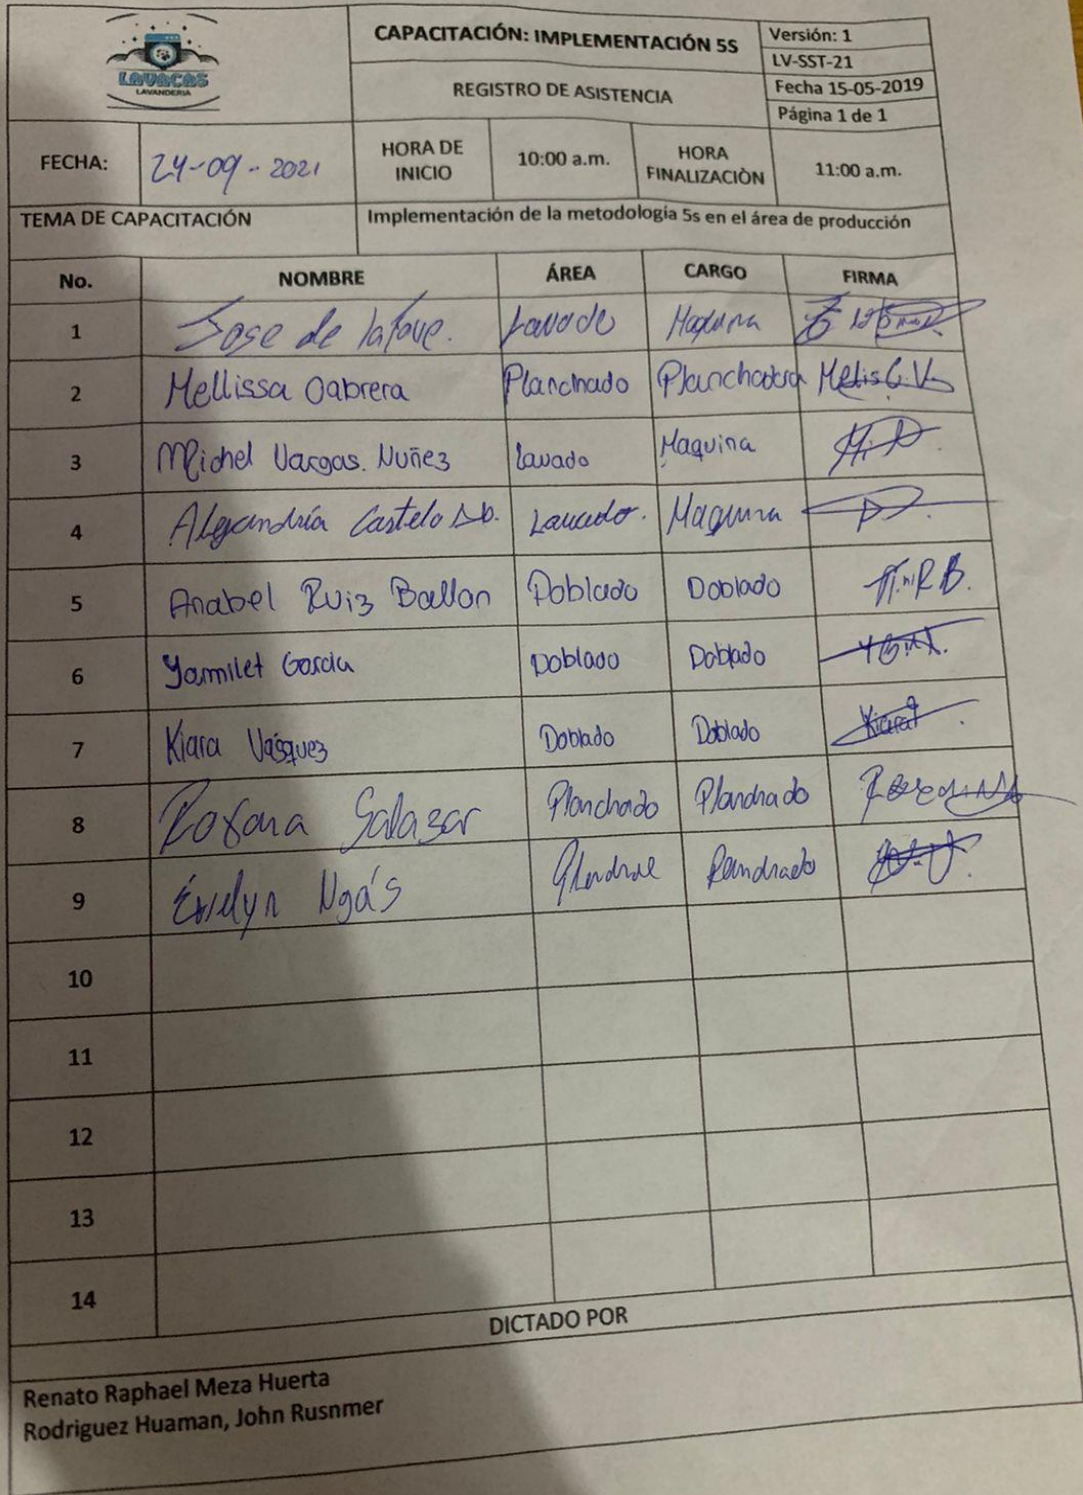 LAVACAS
LAVANDERIA
CAPACITACIÓN: IMPLEMENTACIÓN 5S
REGISTRO DE ASISTENCIA
Versión: 1
LV-SST-21
Fecha 15-05-2019
Página 1 de 1
FECHA: 24-09-2021 HORA DE INICIO 10:00 a.m. HORA FINALIZACIÒN 11:00 a.m.
TEMA DE CAPACITACIÓN Implementación de la metodología 5s en el área de producción
No. NOMBRE ÁREA CARGO FIRMA
1 Jose de la Lavado Maquina
2 Mellissa Cabrera Planchado Planchadora Melis C.V.
3 Michel Vargas. Nuñez Lavado Maquina
4 Alejandría Castelo Lavado. Maquina
5 Anabel Ruiz Ballon Doblado Doblado
6 Yamilet Garcia Doblado Doblado
7 Kiara Vasquez Doblado Doblado Kiara
8 Roxana Salazar Planchado Planchado
9 Evelyn Planchado
10
11
12
13
14
DICTADO POR
Renato Raphael Meza Huerta
Rodriguez Huaman, John Rusnmer